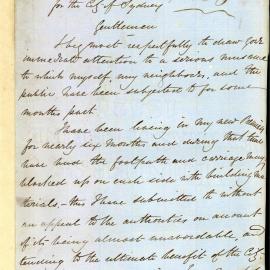 for the City of Sydney
Gentlemen
I beg most respectfully to draw your
immediate attention to a serious nuisance
to which myself, my neighbours, and the
public have been subjected to for some
months past.
I have been living in my new Premises
for nearly six months and during that time
have had the footpath and carriage way
blocked up on each side with building ma
terials, - this I have submitted to without
an appeal to the authorities on account
of its being almost unavoidable, and
tending to the ultimate benefit of the City.